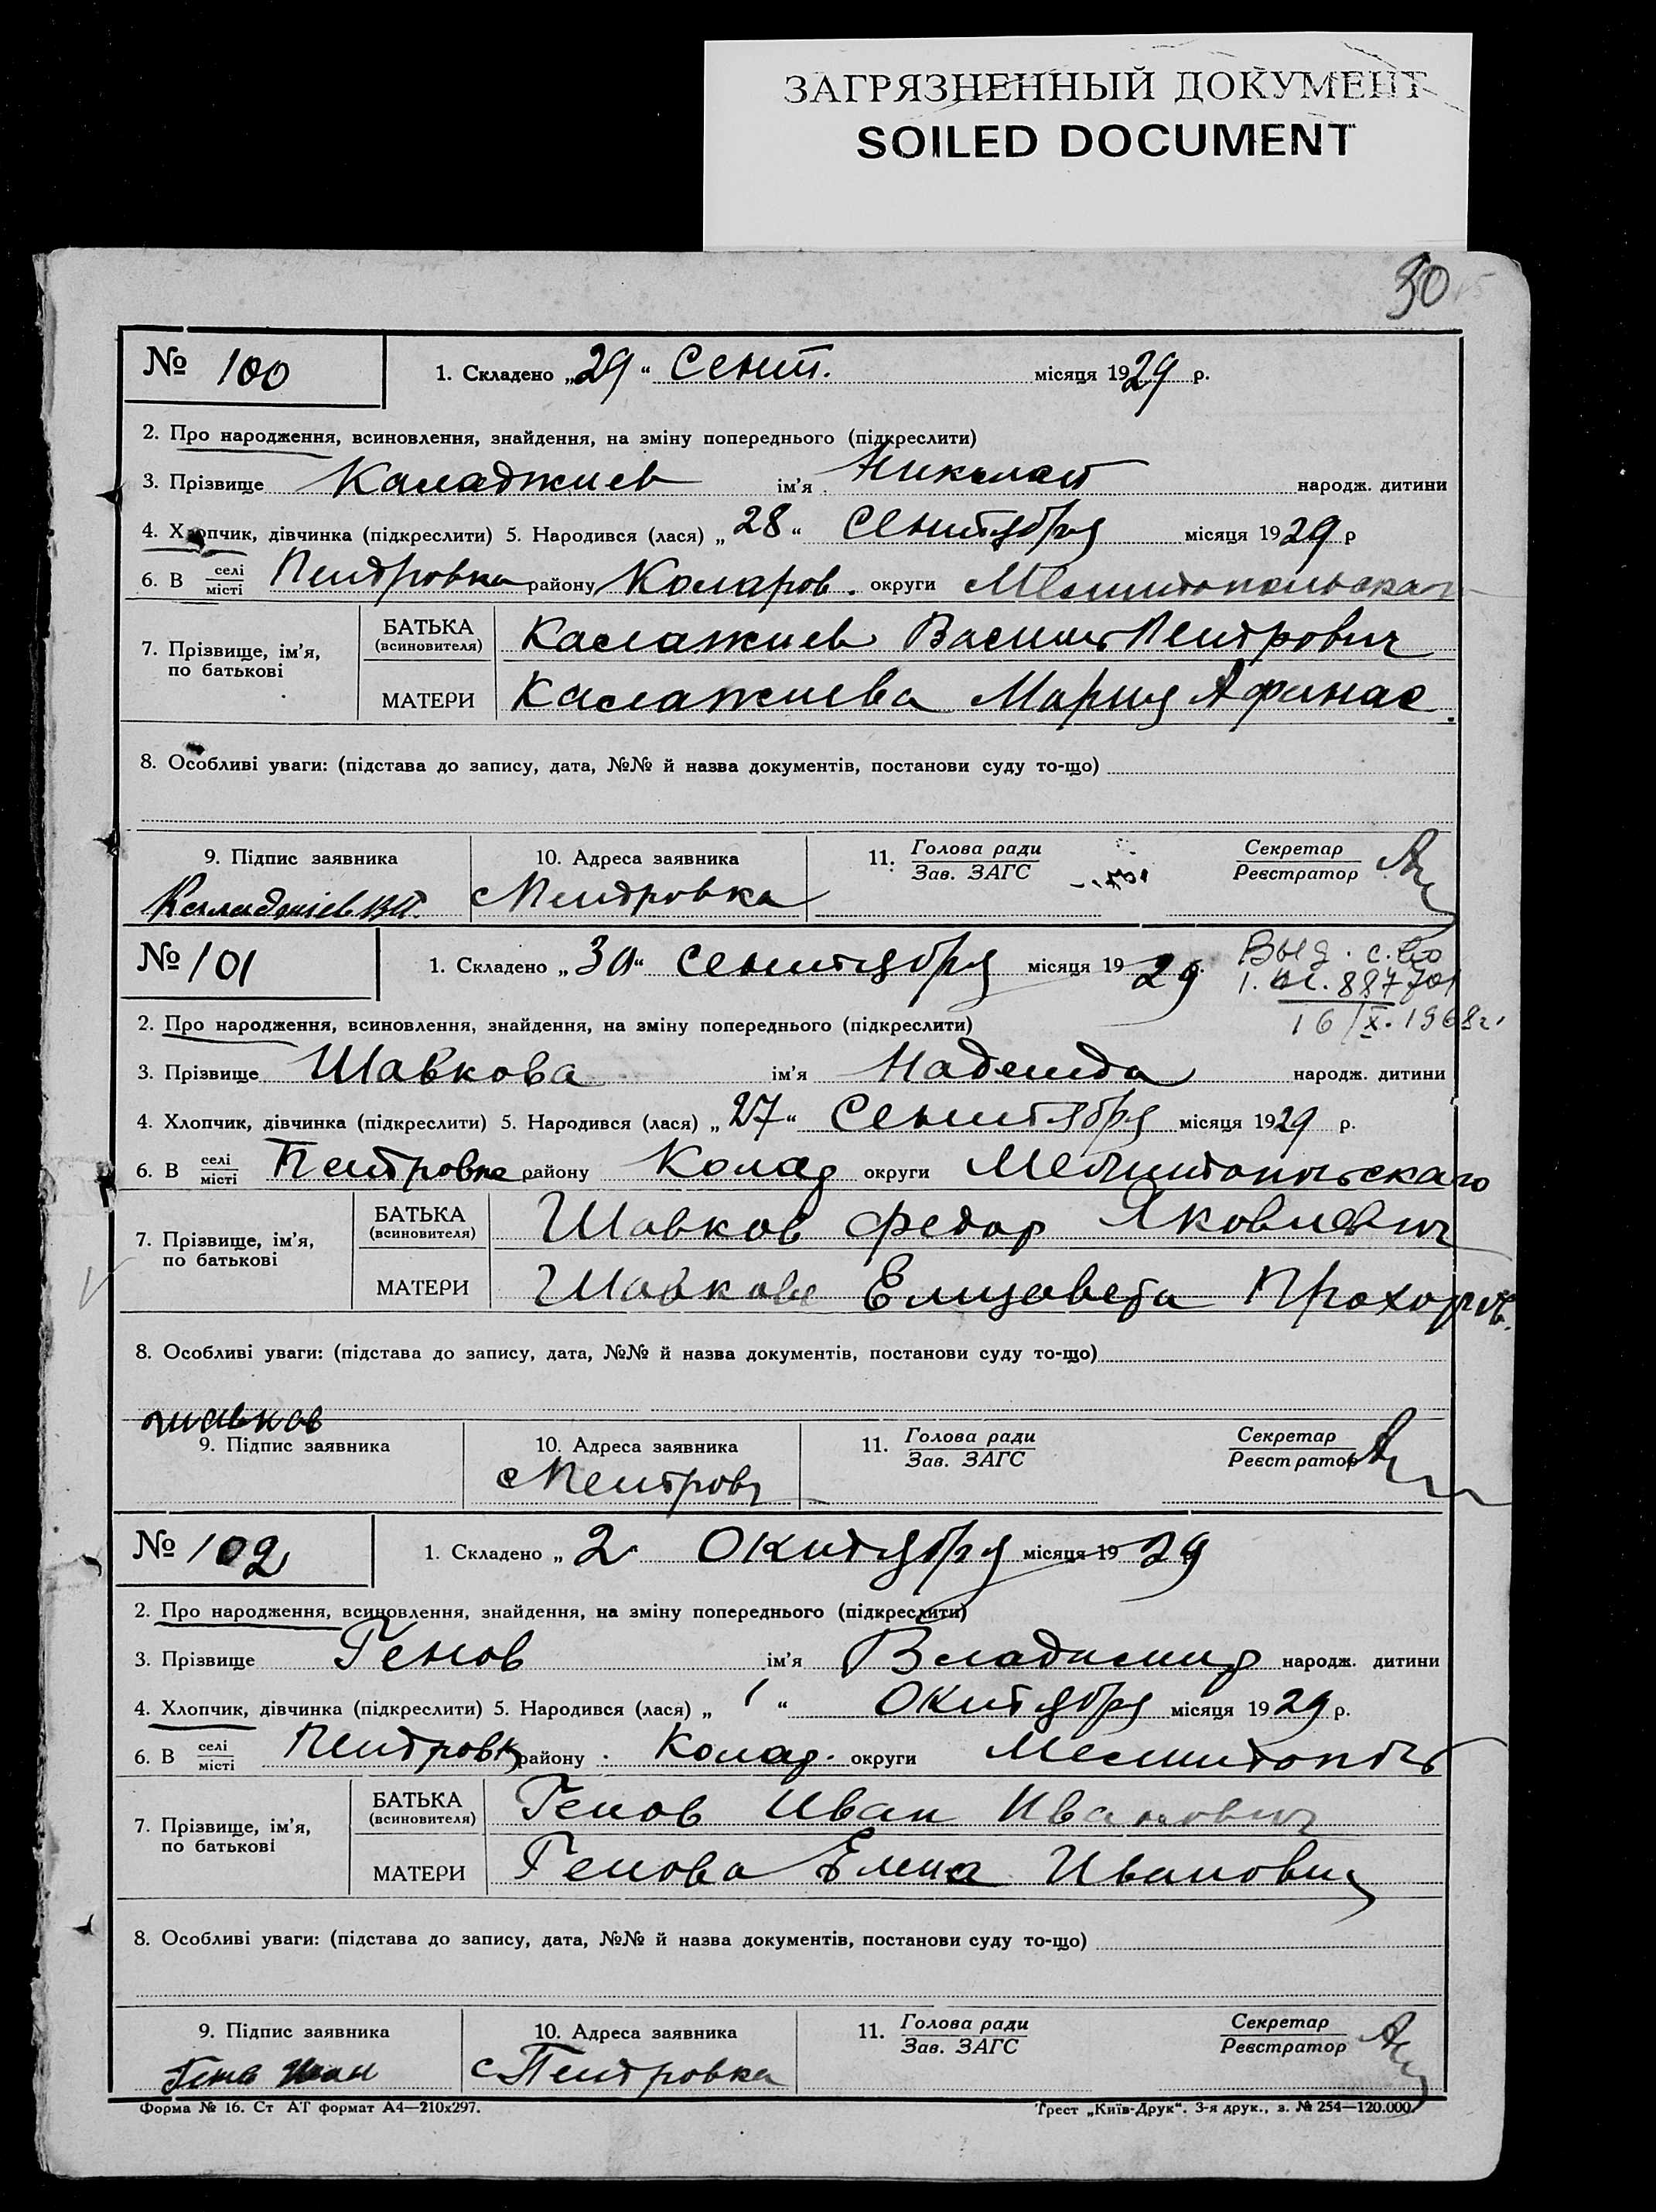 ЗАГРЯЗНЕННЫЙ ДОКУМЕНТ
SOILED DOCUMENT
30
№ 100 1. Складено „29“ Сент. місяця 1929 р.
2. Про народження, всиновлення, знайдення, на зміну попереднього (підкреслити)
3. Прізвище Каладжиев ім'я Николай народж. дитини
4. Хлопчик, дівчинка (підкреслити) 5. Народився (лася) „28“ Сентября місяця 1929 р
6. В селі місті Петровка району Коларов. округи Мелитопольская
7. Прізвище, ім'я, по батькові БАТЬКА (всиновителя) Калажиев Василь Петрович
МАТЕРИ Калажиева Мария Афанас.
8. Особливі уваги: (підстава до запису, дата, №№ й назва документів, постанови суду то-що)
9. Підпис заявника 10. Адреса заявника 11. Голова ради Зав. ЗАГС Секретар Реєстратор
Каладжиев ВП. с Петровка
№ 101 1. Складено „30“ сентября місяця 1929 р. Выд. с. во
1. 887701
16/X. 1968г.
2. Про народження, всиновлення, знайдення, на зміну попереднього (підкреслити)
3. Прізвище Шавкова ім'я Надежда народж. дитини
4. Хлопчик, дівчинка (підкреслити) 5. Народився (лася) „27“ Сентября місяця 1929 р.
6. В селі місті Петровка району Колар округи Мелитопольскаго
7. Прізвище, ім'я, по батькові БАТЬКА (всиновителя) Шавков Федор Яковлевич
МАТЕРИ Шавкова Елизавета Прохоров.
8. Особливі уваги: (підстава до запису, дата, №№ й назва документів, постанови суду то-що)
шавков
9. Підпис заявника 10. Адреса заявника 11. Голова ради Зав. ЗАГС Секретар Реєстратор
с Петровк
№ 102 1. Складено „2“ Октября місяця 1929
2. Про народження, всиновлення, знайдення, на зміну попереднього (підкреслити)
3. Прізвище Генов ім'я Владимир народж. дитини
4. Хлопчик, дівчинка (підкреслити) 5. Народився (лася) „1“ Октября місяця 1929 р.
6. В селі місті Петровк району Колар. округи Мелитополь
7. Прізвище, ім'я, по батькові БАТЬКА (всиновителя) Генов Иван Иванович
МАТЕРИ Генова Елена Ивановн
8. Особливі уваги: (підстава до запису, дата, №№ й назва документів, постанови суду то-що)
9. Підпис заявника 10. Адреса заявника 11. Голова ради Зав. ЗАГС Секретар Реєстратор
Генов Иван с Петровка
Форма № 16. Ст АТ формат А4—210х297. Трест „Київ-Друк“. 3-я друк., з. № 254—120.000.